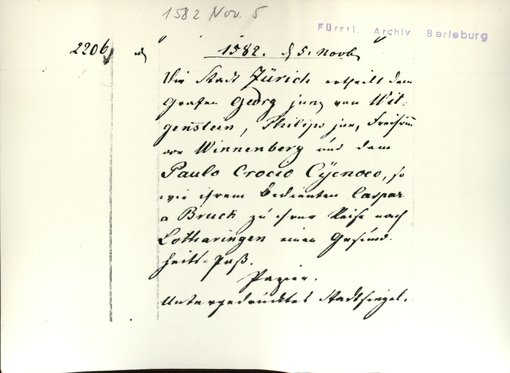 1582 Nov. 5
Fürstl. Archiv Berleburg
2206
1582. 5. Novb.
Die Stadt Zürich ertheilt dem
Grafen Georg jun. von Wit-
genstein, Philips jun. Freiherrn
von Winnenberg und dem
Paulo Crocio Cycnoeo, so
wie ihrem Bedienten Caspar
a Bruck zu ihrer Reise nach
Lotharingen einen Gesund-
heits-Paß.
Papier.
Untergedrücktes Stadtsiegel.